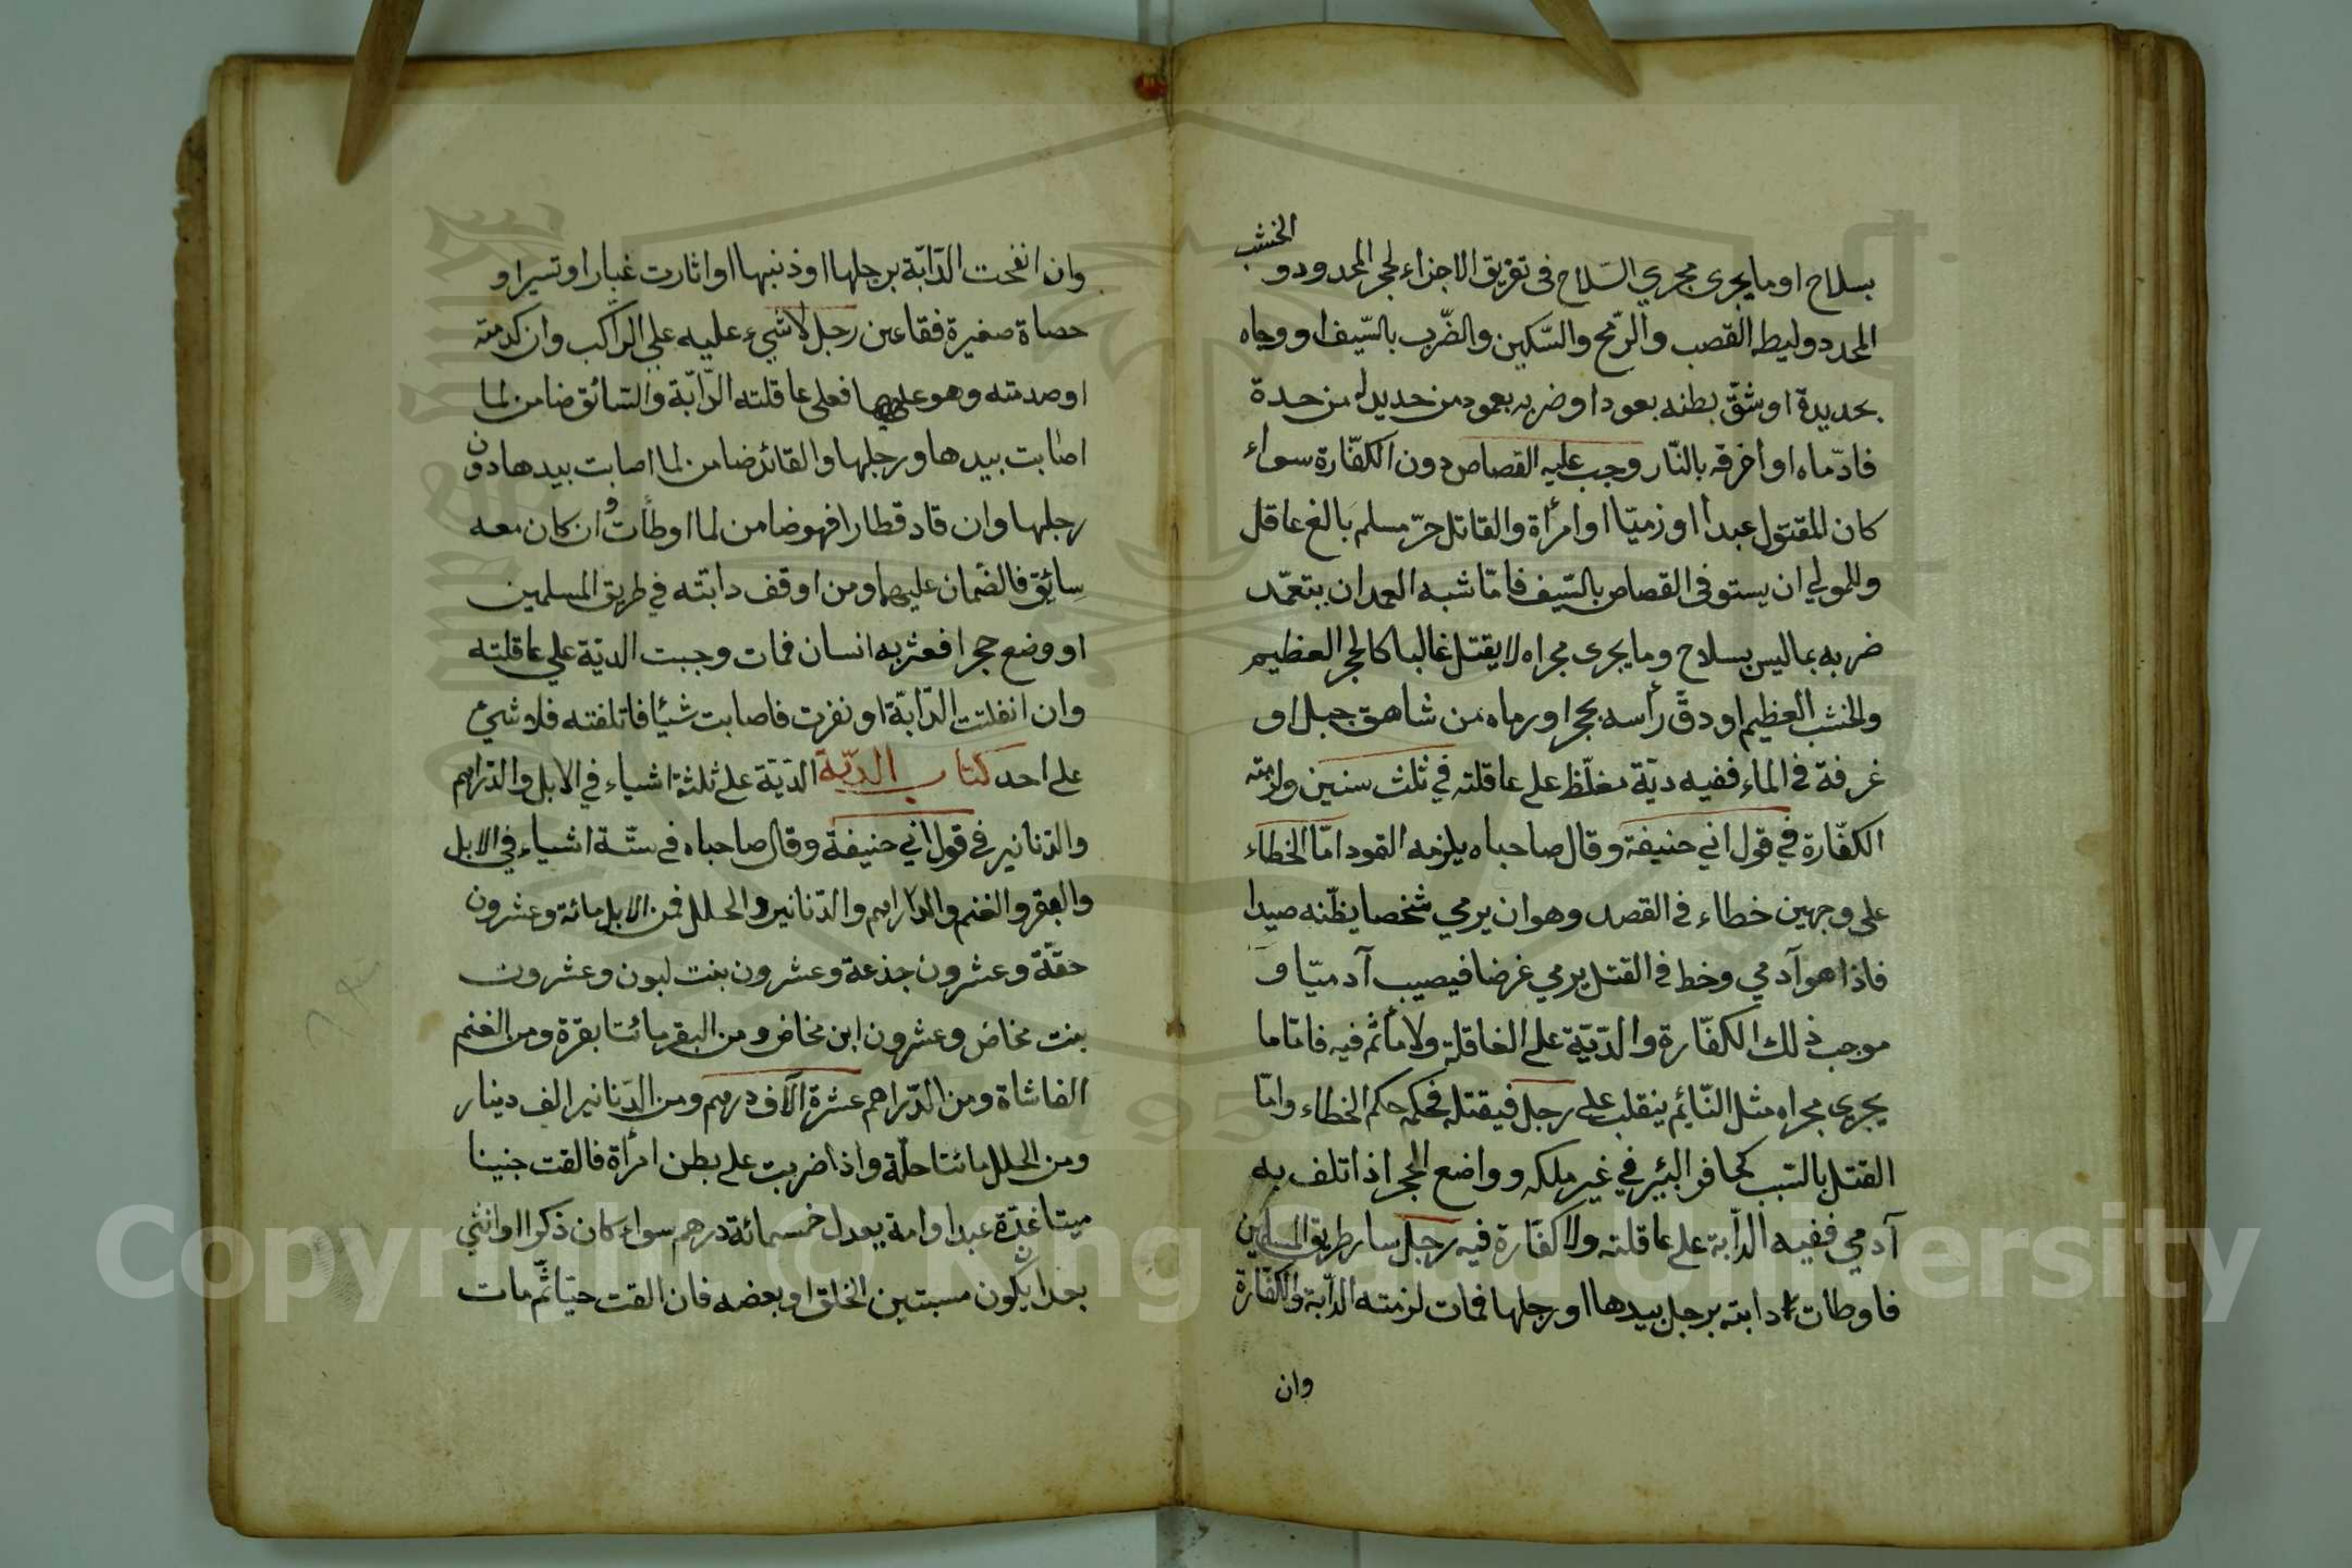 بسلاح او ما يجرى مجري السّلاح فى تفريق الاجزاء لحجر المحدود و
الخشب
المحدد وليطه القصب والرّمح والسّكين والضّرب بالسّيف او وجاه
بحديدة او شقّ بطنه بعود او ضربه بعمود من حديد له من حدة
فادّماه او أخرقه بالنّار وجب عليه القصاص دون الكفّارة سواء
كان المقتول عبدا او زميّا او امرأة والقاتل حرّ مسلم بالغ عاقل
وللمولي ان يستوفى القصاص بالسّيف فامّا شبه العمد ان يتعمّد
ضربه بما ليس بسلاح وما يجرى مجراه لا يقتل غالبا كالحجر العظيم
والخشب العظيم او دقّ رأسه بحجر او رماه من شاهق جبل او
غرفة فى الماء ففيه ديّة مغلّظ على عاقلته في ثلث سنين ولزمته
الكفّارة في قول ابي حنيفة وقال صاحباه يلزمه القود امّا الخطاء
على وجهين خطاء فى القصد وهو ان يرمي شخصا يظنّه صيدا
فاذا هو آدمي وخط فى القتل يرمي غرضا فيصيب آدميّا و
موجب ذلك الكفّارة والدّيّة على العاقلة ولا مأثم فيه فامّا ما
يجرى مجراه مثل النّائم ينقلب على رجل فيقتله فحكمه حكم الخطاء وامّا
القتل بالسّبب كحافر البئر في غير ملكه وواضع الحجر اذا تلف به
آدمي ففيه الدّابة على عاقلته ولا كفّارة فيه رجل سار طريق المسلمين
فاوطات دابته برجل بيدها او رجلها فمات لزمته الدّابة والكفّارة
وان
وان انفحت الدّابّة برجلها او ذنبها او اثارت غبارا وتسيرا و
حصاة صغيرة فقاء عين رجل لا شيء عليه علي الرّاكب وان كدمته
او صدمته وهو عليها فعلى عاقلته الدّابّة والسّائق ضامن لما
اصابت بيدها ورجلها والقائد ضامن لما اصابت بيدها دون
رجلها وان قاد قطارا فهو ضامن لما اوطأت وان كان معه
سائق فالضّمان عليهما ومن اوقف دابّته في طريق المسلمين
او وضع حجرا فعثر به انسان فمات وجبت الديّة علي عاقلته
وان انفلتت الدّابّة او نفرت فاصابت شيئا فاتلفته فلا شيء
على احد كتاب الديّة الدّيّة على ثلثة اشياء في الابل والدّراهم
والدّنانير فى قول ابي حنيفة وقال صاحباه فى ستّة اشياء في الابل
والبقر والغنم والدّراهم والدّنانير والحلل فمن الابل مائة وعشرون
حقّة وعشرون جذعة وعشرون بنت لبون وعشرون
بنت مخاض وعشرون ابن مخاض ومن البقر مائتا بقرة ومن الغنم
الفا شاة ومن الدّراهم عشرة آلاف درهم ومن الدّنانير الف دينار
ومن الحلل مائتا حلّة واذا ضربت على بطن امرأة فالقت جنينا
ميتا غدّة عبدا او امة يعدل خمسمائة درهم سواء كان ذكرا او انثي
بعد ان يكون مسبتين الخلق او بعضه فان القت حيّا ثمّ مات
Copyright © King Saud University